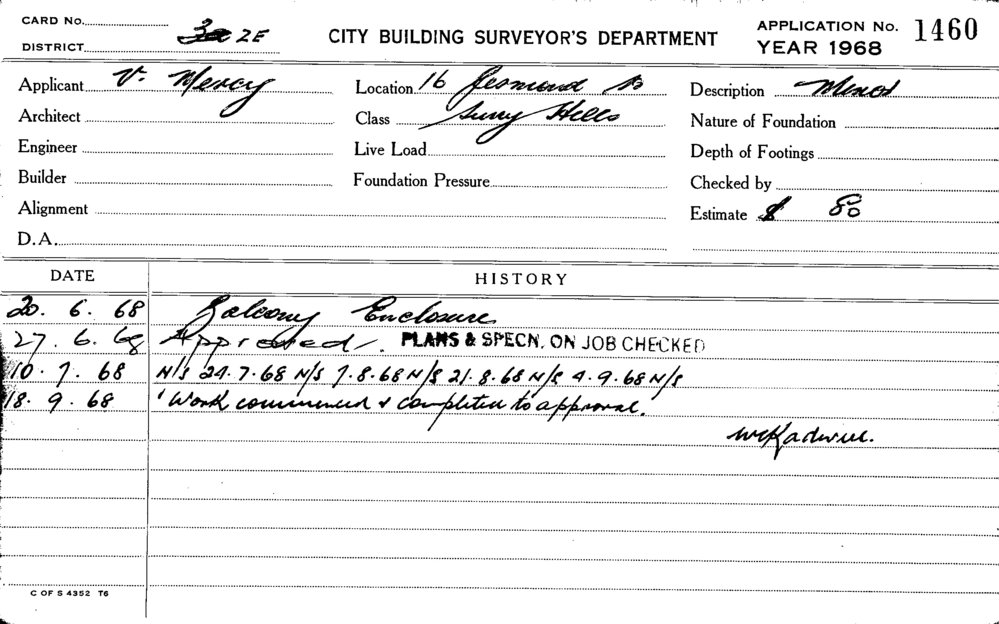 CARD No.
DISTRICT 2E
CITY BUILDING SURVEYOR'S DEPARTMENT
APPLICATION No. 1460
YEAR 1968
Applicant V. Mercy
Location 16 Jesmond St
Description Minor
Architect
Class Surry Hills
Nature of Foundation
Engineer
Live Load
Depth of Footings
Builder
Foundation Pressure
Checked by
Alignment
Estimate $ 80
D.A.
DATE
HISTORY
20. 6. 68 Balcony Enclosure
27. 6. 68 Approved. PLANS & SPECN. ON JOB CHECKED
10. 7. 68 N/S 24.7.68 N/S 7.8.68 N/S 21.8.68 N/S 4.9.68 N/S
18. 9. 68 Work commenced & completed to approval.
C OF S 4352 T6